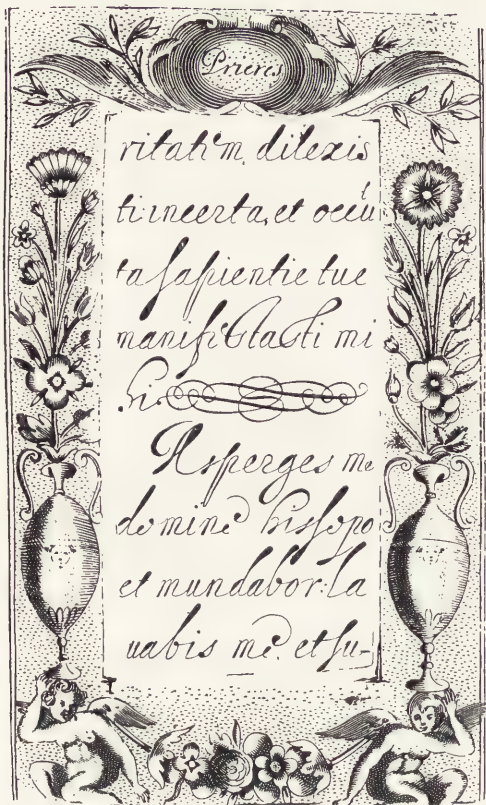 Prieres
ritatem, dilexis
ti: incerta, et occul
ta sapientie tue
manifestasti mi
hi.
Asperges me
domine hissopo
et mundabor: la
uabis me. et su-